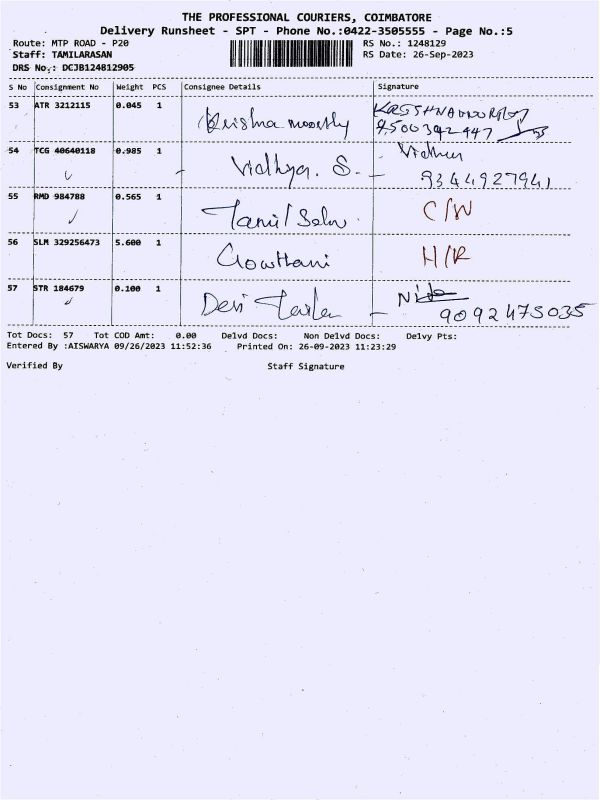 THE PROFESSIONAL COURIERS, COIMBATORE
Delivery Runsheet - SPT - Phone No.:0422-3505555 - Page No.:5
Route: MTP ROAD - P20 RS No.: 1248129
Staff: TAMILARASAN RS Date: 26-Sep-2023
DRS No.: DCJB124812905
S No Consignment No Weight PCS Consignee Details Signature
53 ATR 3212115 0.045 1 Krishna moorthy
9500342447
54 TCG 40640118 0.985 1 Vidhya. S. - 
9344927941
55 RMD 984788 0.565 1 Tamil Selvi C/W
56 SLM 329256473 5.600 1 Gowthami H/R
57 STR 184679 0.100 1 Devi -
9092475035
Tot Docs: 57 Tot COD Amt: 0.00 Delvd Docs: Non Delvd Docs: Delvy Pts:
Entered By :AISWARYA 09/26/2023 11:52:36 Printed On: 26-09-2023 11:23:29
Verified By Staff Signature